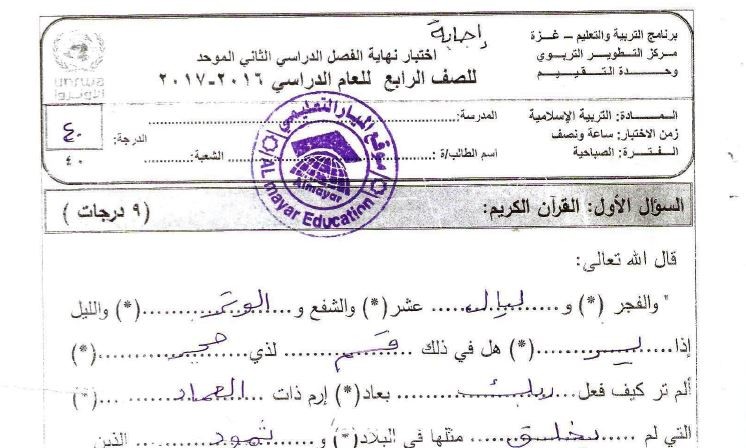 إجابة
برنامج التربية والتعليم – غزة
مركز التطوير التربوي
وحدة التقييم
اختبار نهاية الفصل الدراسي الثاني الموحد
للصف الرابع للعام الدراسي ٢٠١٦-٢٠١٧
unrwa
الأونروا
المادة: التربية الإسلامية
زمن الاختبار: ساعة ونصف
الفترة: الصباحية
المدرسة:
اسم الطالب/ة :
الشعبة:
الدرجة:
٤٠
٤٠
موقع الميار التعليمي
Almayar
AL mayar Education
السؤال الأول: القرآن الكريم:
(٩ درجات)
قال الله تعالى:
" والفجر (*) و ليال عشر (*) والشفع و الوتر (*) والليل
إذا يسر (*) هل في ذلك قسم لذي حجر (*)
ألم تر كيف فعل ربك بعاد(*) إرم ذات العماد (*)
التي لم يخلق مثلها في البلاد(*) و ثمود الذين